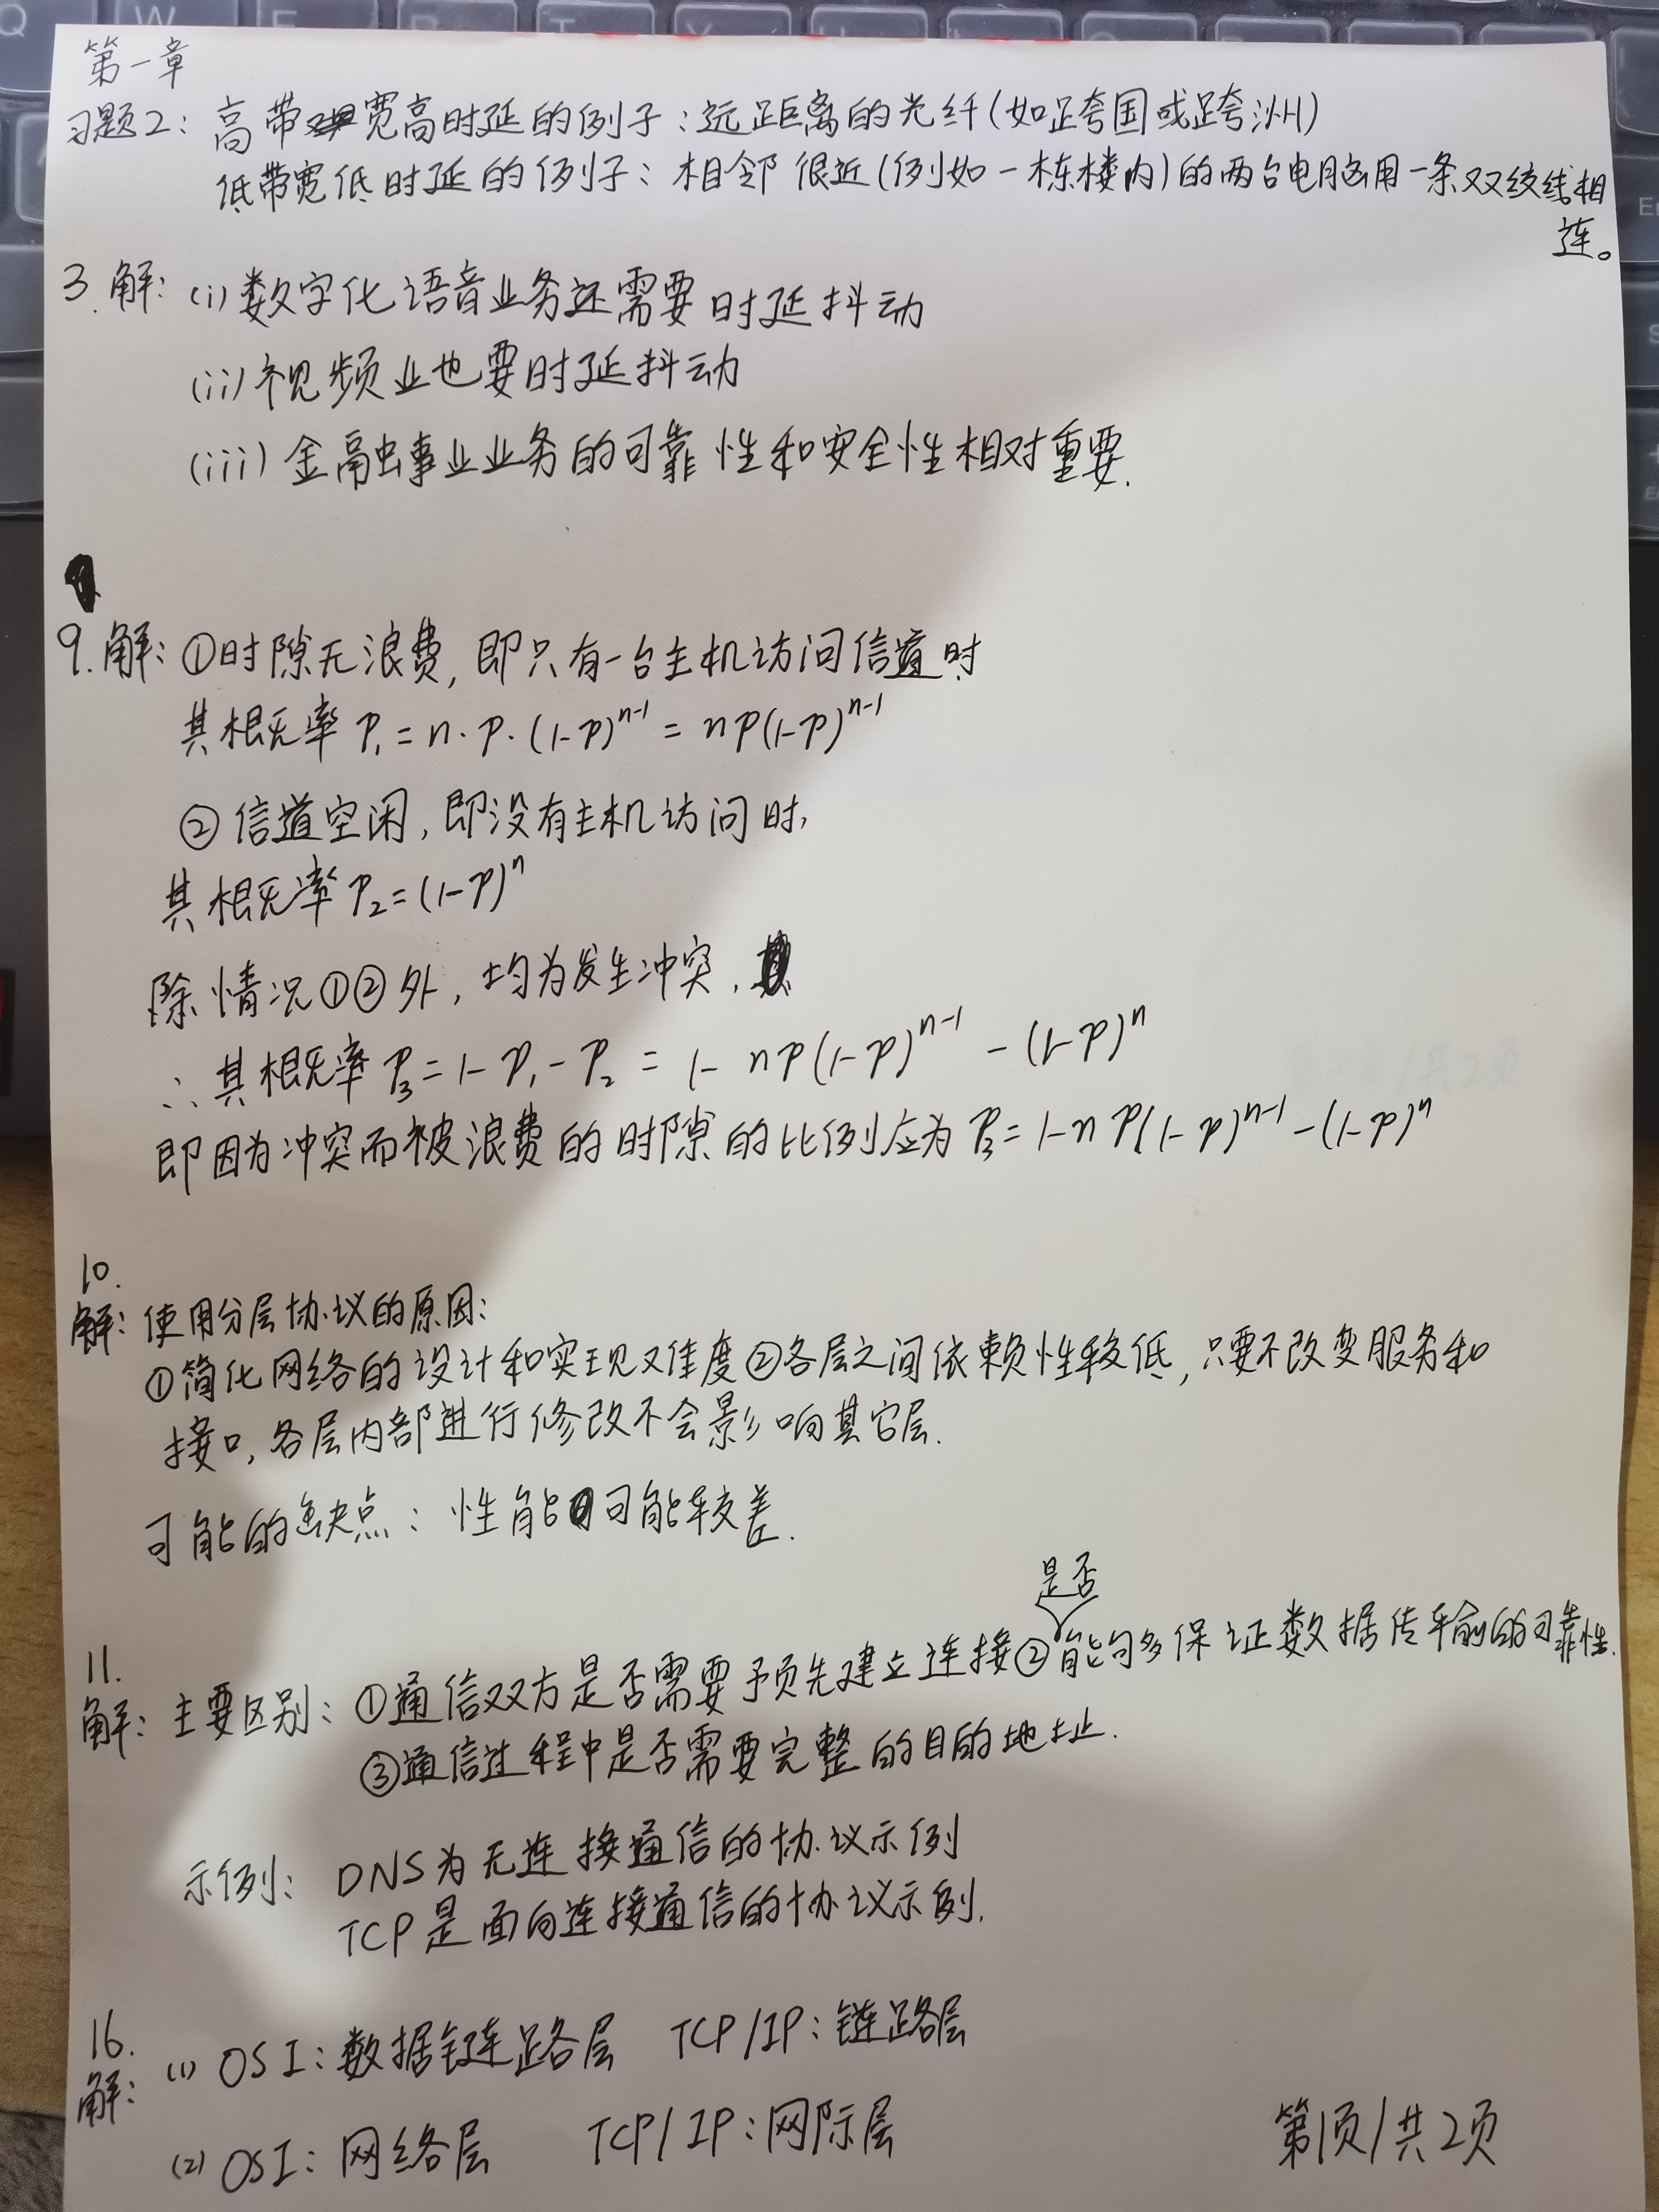 第一章
习题2: 高带宽高时延的例子:远距离的光纤(如跨国或跨洲)
低带宽低时延的例子:相邻很近(例如一栋楼内)的两台电脑用一条双绞线相
连。
3.解: (i)数字化语音业务还需要时延抖动
(ii)视频业也要时延抖动
(iii)金融事业业务的可靠性和安全性相对重要.
9.解: ①时隙无浪费,即只有一台主机访问信道时
其概率 P₁=n·p·(1-p)ⁿ⁻¹=np(1-p)ⁿ⁻¹
②信道空闲,即没有主机访问时,
其概率P₂=(1-p)ⁿ
除情况①②外,均为发生冲突.
∴其概率P₃=1-P₁-P₂=1-np(1-p)ⁿ⁻¹-(1-p)ⁿ
即因为冲突而被浪费的时隙的比例应为P₃=1-np(1-p)ⁿ⁻¹-(1-p)ⁿ
10.
解: 使用分层协议的原因:
①简化网络的设计和实现难度②各层之间依赖性较低,只要不改变服务和
接口,各层内部进行修改不会影响其它层.
可能的缺点: 性能可能较差.
是否
11.
解: 主要区别: ①通信双方是否需要预先建立连接②能够保证数据传输的可靠性.
③通信过程中是否需要完整的目的地址.
示例: DNS为无连接通信的协议示例
TCP是面向连接通信的协议示例.
16.
解: (1) OSI:数据链路层 TCP/IP:链路层
(2) OSI:网络层 TCP/IP:网际层
第1页/共2页